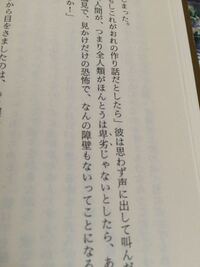 まった。
しこれがおれの作り話だとしたら」彼は思わず声に出して叫んだ
人間が、つまり全人類がほんとうは卑劣じゃないとしたら、あ
見で、見かけだけの恐怖で、なんの障壁もないってことになる
か！」
から目をさましたのは、